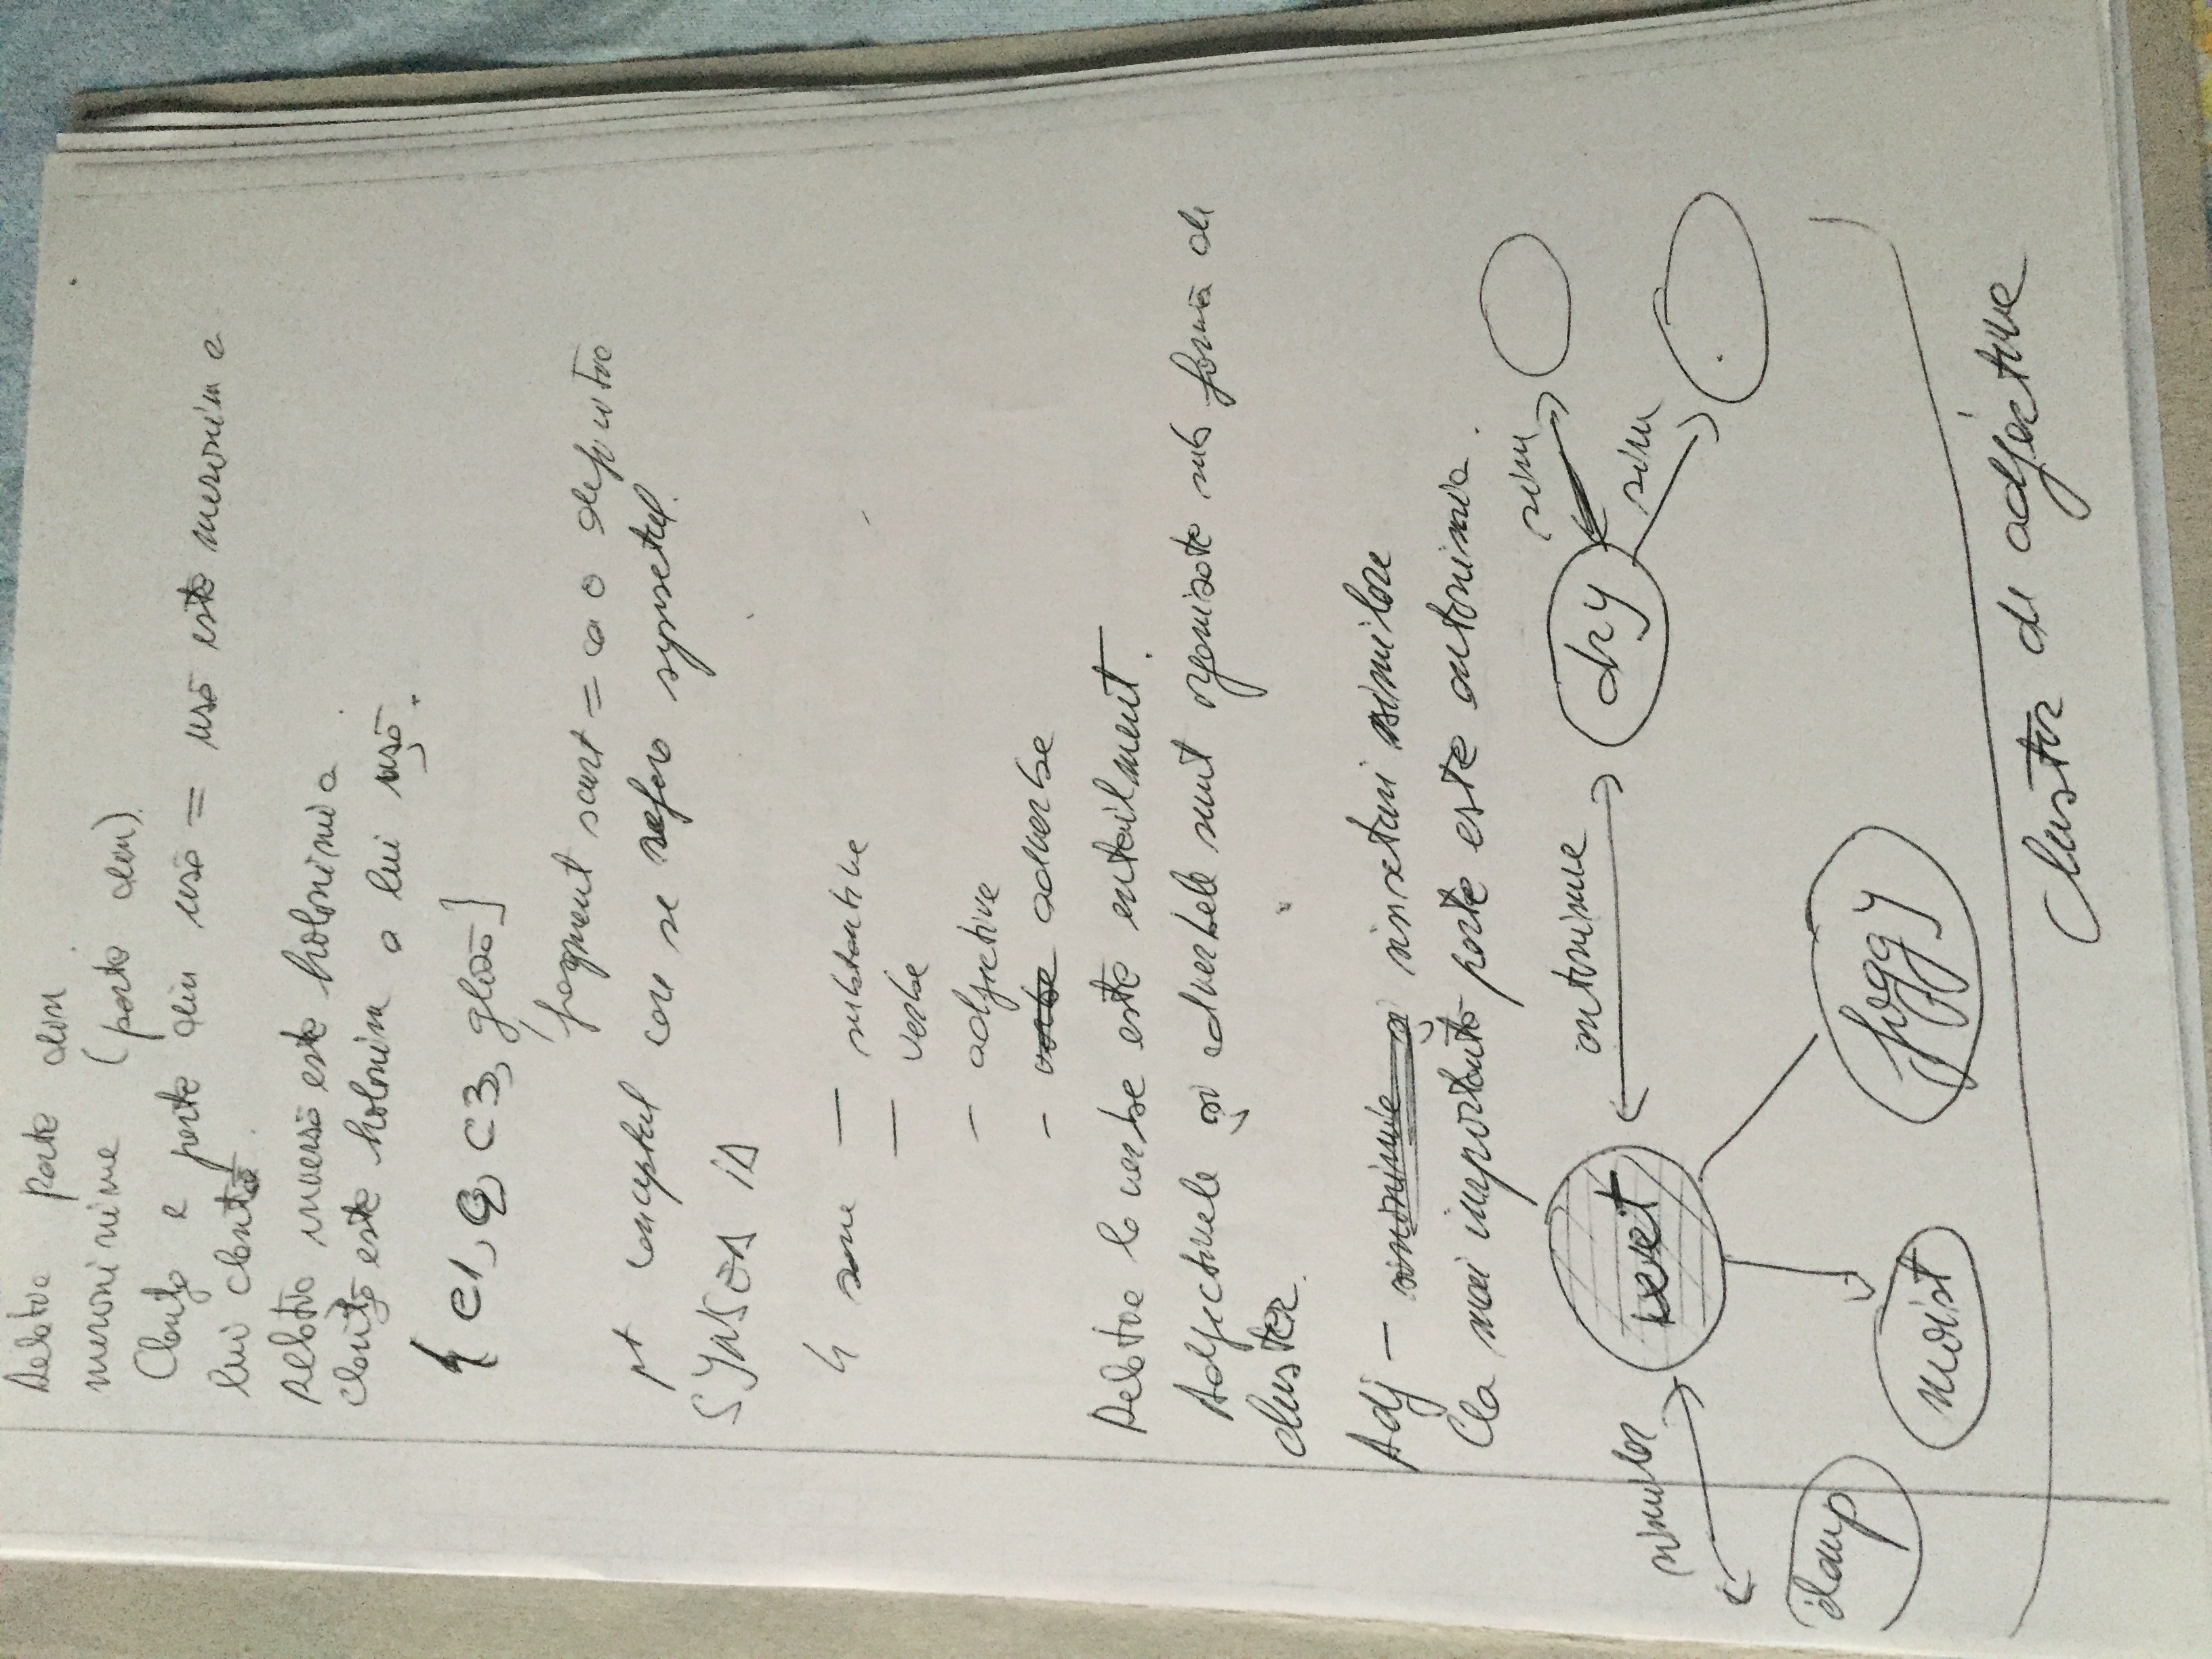 Relatia parte din
meronimie (parte din).
Clanța e parte din usă = usă este meronim a
lui clanță.
Relatia inversă este holonimia.
clanța este holonim a lui ușă.
{ C1, C2, C3, gloză }
fragment scurt = ca o definitie
pt conceptul care se refera synsetul.
SYNSET ID
4 zone - substantive
- verbe
- adjective
- verbe adverbe
Relatia la verbe este entailment.
Adjectivele și adverbele sunt organizate sub formă de
cluster.
Adj - sinonimie și sinseturi similare
Cea mai importantă parte este antonimia.
sim
antonimie
dry
wet
sim
similar
damp
moist
foggy
Cluster de adjective